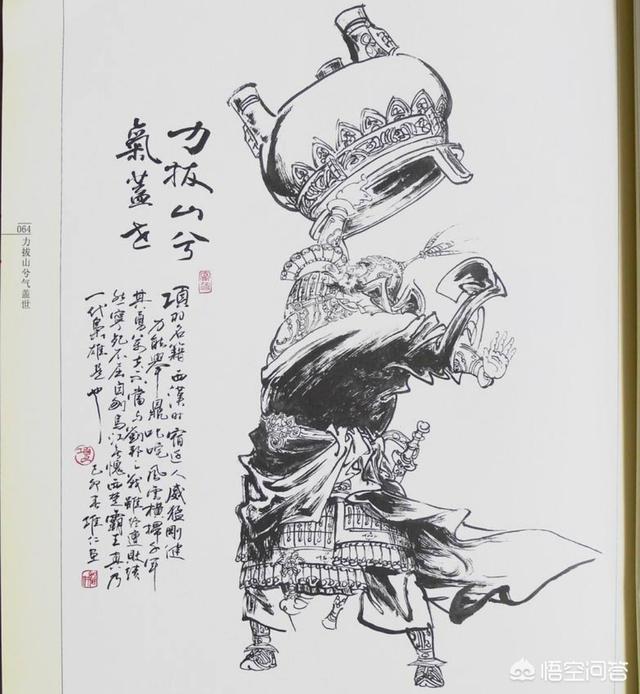 力拔山兮
氣蓋世
項羽名籍西漢時宿迁人威猛剛健
力能舉鼎叱咤風雲橫掃千軍
其勇萬夫不當与劉邦之戰雖終連敗績
然寧死不屈自刎烏江不愧西楚霸王真乃
一代梟雄是也
己卯
064
力拔山兮气盖世
悟空问答